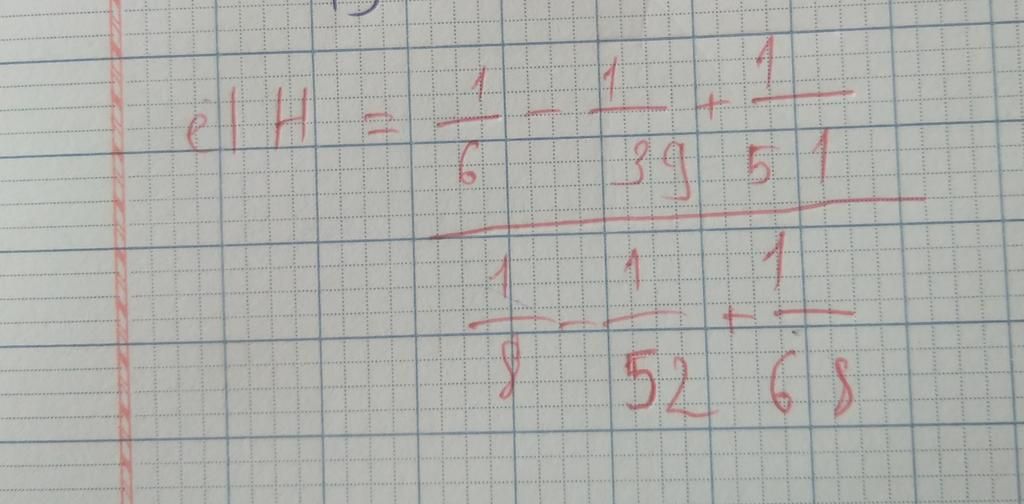 e) H = 1/6 - 1/39 + 1/51
1/8 - 1/52 + 1/68